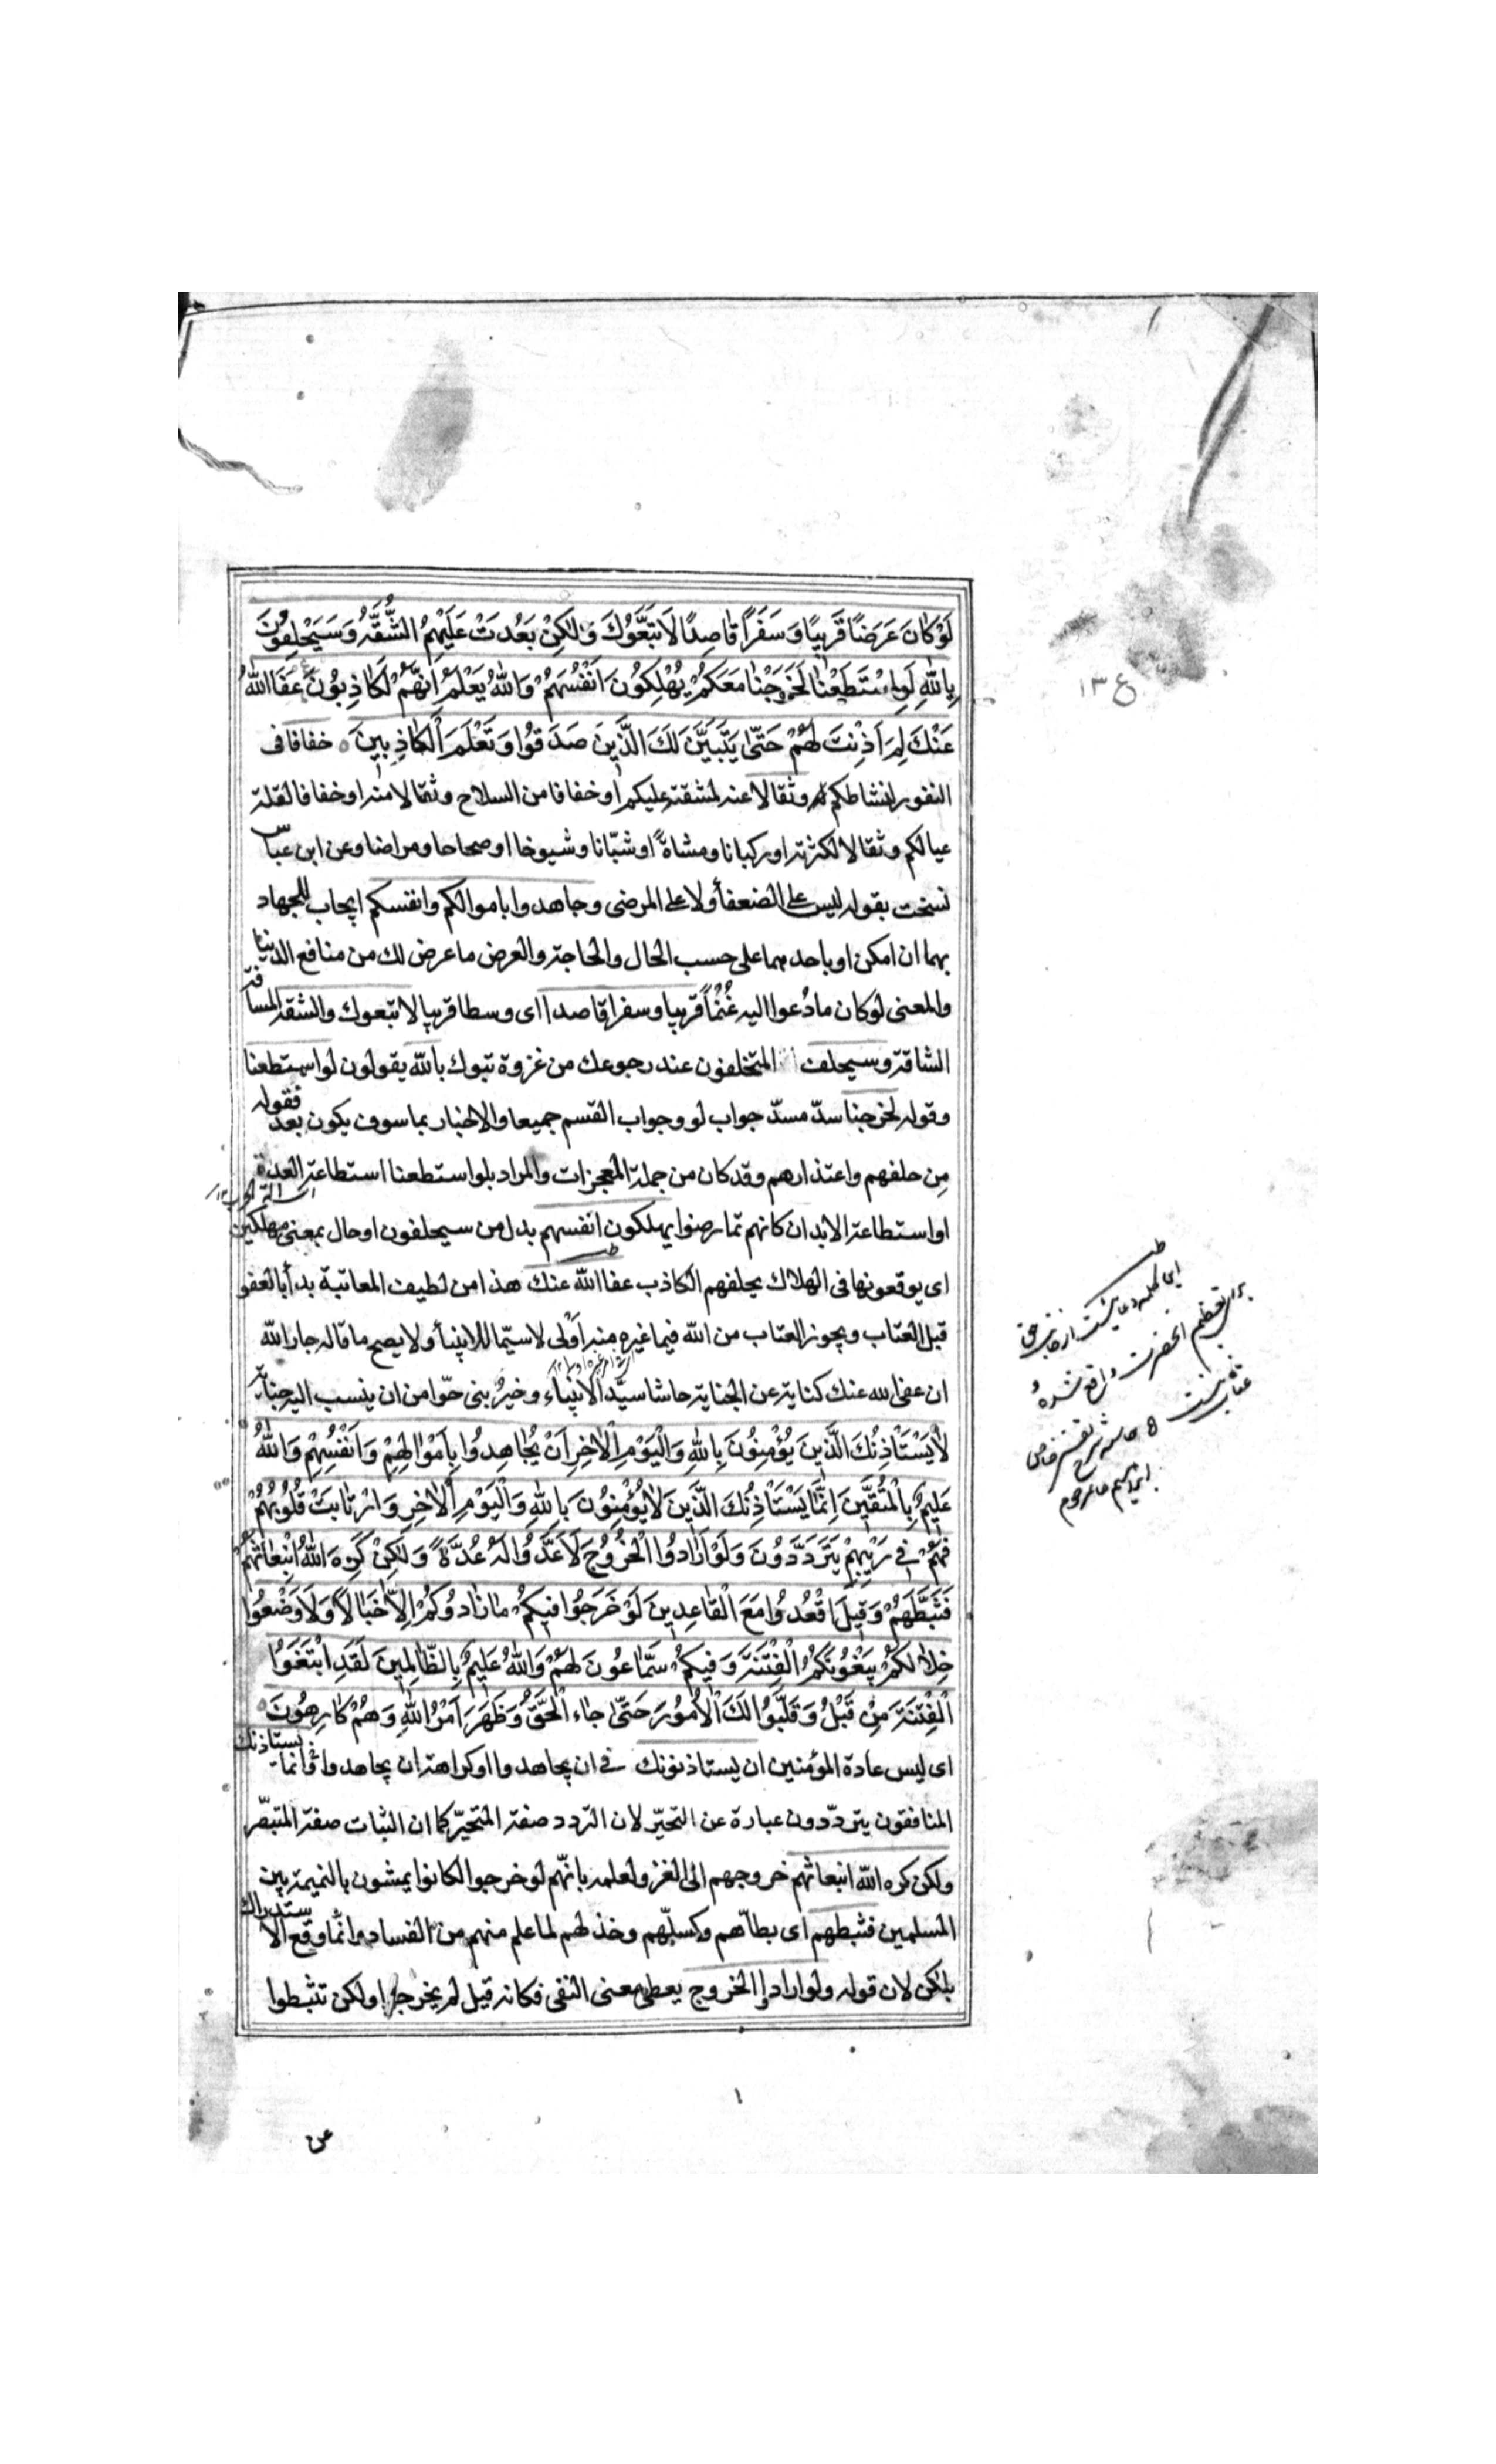 لَوْ كَانَ عَرَضًا قَرِيبًا وَسَفَرًا قَاصِدًا لَاتَّبَعُوكَ وَلَكِنْ بَعُدَتْ عَلَيْهِمُ الشُّقَّةُ وَسَيَحْلِفُونَ
بِاللهِ لَوِ اسْتَطَعْنَا لَخَرَجْنَا مَعَكُمْ يُهْلِكُونَ اَنْفُسَهُمْ وَاللهُ يَعْلَمُ اَنَّهُمْ لَكَاذِبُونَ عَفَا اللهُ
عَنْكَ لِمَ اَذِنْتَ لَهُمْ حَتّٰى يَتَبَيَّنَ لَكَ الَّذِينَ صَدَقُوا وَتَعْلَمَ الْكَاذِبِينَ ه خفافا فى
النفور لنشاطكم له وثقالا عنه لمشقته عليكم او خفافا من السلاح وثقالا منه او خفافا لقلة
عيالكم وثقالا لكثرته او ركبانا ومشاةً او شبّانا وشيوخا او صحاحا ومراضا وعن ابن عباس
نسخت بقوله ليس على الضعفأ ولا على المرضى وجاهدوا باموالكم وانفسكم ايجاب للجهاد
بهما ان امكن او باحدهما على حسب الحال والحاجة والعرض ما عرض لك من منافع الدنيا
والمعنى لو كان ما دُعوا اليه غُنْمًا قريبا وسفرا قاصدا اى وسطا قريبا لاتبعوك والشقة المسافة
الشاقة وسيحلف المتخلفون عند رجوعك من غزوة تبوك بالله يقولون لو استطعنا
وقوله لخرجنا سدّ مسدّ جواب لو وجواب القسم جميعا والاخبار بما سوف يكون بعد فقوله
مِن حلفهم واعتذارهم وقد كان من جملة المعجزات والمراد بلو استطعنا استطاعة العدة
او استطاعة الابدان كانهم تمارضوا يهلكون انفسهم بدل من سيحلفون او حال بمعنى مهلكين
اى يوقعونها فى الهلاك بحلفهم الكاذب عفا الله عنك هذا من لطيف المعاتبة بدأ بالعفو
قبل العتاب ويجوز العتاب من الله فيما غيره منه اَوْلى لا سيّما للانبيأ ولا يصح ما قاله جار الله
ان عفى الله عنك كناية عن الجناية حاشا سيّد الانبياء وخير بنى حوّا من ان ينسب اليه جناية
لاٰ يَسْتَاْذِنُكَ الَّذِينَ يُؤْمِنُونَ بِاللهِ وَالْيَوْمِ الْاٰخِرِ اَنْ يُجَاهِدُوا بِاَمْوَالِهِمْ وَاَنْفُسِهِمْ وَاللهُ
عَلِيمٌ بِالْمُتَّقِينَ اِنَّمَا يَسْتَاْذِنُكَ الَّذِينَ لاٰ يُؤْمِنُونَ بِاللهِ وَالْيَوْمِ الْاٰخِرِ وَارْتَابَتْ قُلُوبُهُمْ
فَهُمْ فِى رَيْبِهِمْ يَتَرَدَّدُونَ وَلَوْ اَرَادُوا الْخُرُوجَ لَاَعَدُّوا لَهُ عُدَّةً وَلٰكِنْ كَرِهَ اللهُ انْبِعَاثَهُمْ
فَثَبَّطَهُمْ وَقِيلَ اقْعُدُوا مَعَ الْقَاعِدِينَ لَوْ خَرَجُوا فِيكُمْ مَا زَادُوكُمْ اِلاّٰ خَبَالاً وَلَا وْضَعُوا
خِلَالَكُمْ يَبْغُونَكُمُ الْفِتْنَةَ وَفِيكُمْ سَمَّاعُونَ لَهُمْ وَاللهُ عَلِيمٌ بِالظَّالِمِينَ لَقَدِ ابْتَغَوُا
الْفِتْنَةَ مِنْ قَبْلُ وَقَلَّبُوا لَكَ الْاُمُورَ حَتّٰى جَاءَ الْحَقُّ وَظَهَرَ اَمْرُ اللهِ وَهُمْ كَارِهُونَ ه
اى ليس عادة المؤمنين ان يستاذنونك فى ان يجاهدوا او كراهة ان يجاهدوا وانما يستاذنك
المنافقون يتردّدون عبارة عن التحيّر لان التردد صفة المتحيّر كما ان الثبات صفة المتبصّر
ولكن كره الله انبعاثهم خروجهم الى الغزو لعلمه بانّهم لو خرجوا لكانوا يمشون بالنميمة بين
المسلمين فثبطهم اى بطاّهم وكسلّهم وخذلهم لما علم منهم من الفساد وانّما وقع الاستدراك
بلكن لان قوله ولو ارادوا الخروج يعطى معنى النفى فكانه قيل لم يخرجوا ولكن تثبطوا
عن
ع ١٣